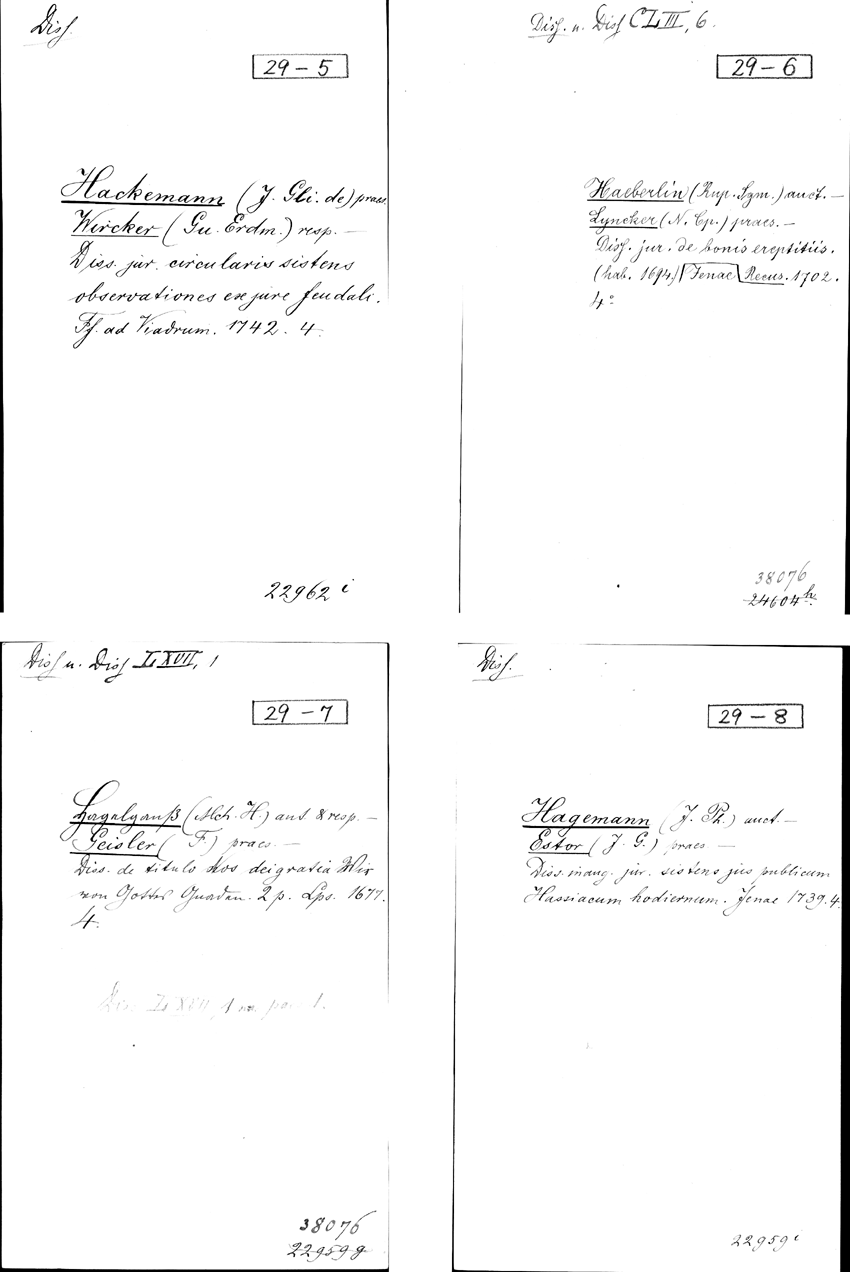 Diss.
29-5
Hackemann (J. Gli. de) praes.
Wircker (Gu. Erdm.) resp. —
Diss. jur. circularis sistens
observationes ex jure feudali.
Ff. ad Viadrum. 1742. 4.
22962 i
Diss. u. Diss CLIII, 6.
29-6
Haeberlin (Rup. Sgm.) auct. —
Lyncker (N. Cp.) praes. —
Diss. jur. de bonis ereptitiis.
(hab. 1694) Jenae Recus. 1702.
4°
38076
24604 h.
Diss u. Diss LXVII, 1
29-7
Hagelgans (Mch. H.) aut & resp. —
Geisler (F.) praes. —
Diss. de titulo Nos dei gratia Wir
von Gottes Gnaden. 2 p. Lps. 1677.
4.
Diss LXVII, 1
38076
22959 g
Diss.
29-8
Hagemann (J. Ph.) auct. —
Estor (J. G.) praes —
Diss. inaug. jur. sistens jus publicum
Hassiacum hodiernum. Jenae 1739. 4.
22959 i